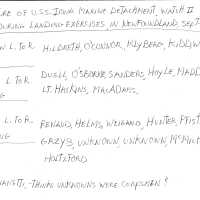 RE OF U.S.S. IOWA MARINE DETACHMENT, WATCH II
DURING LANDING EXERCISES IN NEWFOUNDLAND, SEPT
W L. TO R. HILDRETH, O'CONNOR, KIDD, W
L. TO R. DUELL, OSBORNE, SANDERS, HOYLE, MADD
NG LT. HASKINS, MACADAMS,
L. TO R. RENAUD, HELMS, WEIGAND, HUNTER, PFIST
NG UNKNOWN, UNKNOWN,
HOLTSFORD
THINK UNKNOWNS WERE CORPSMEN?